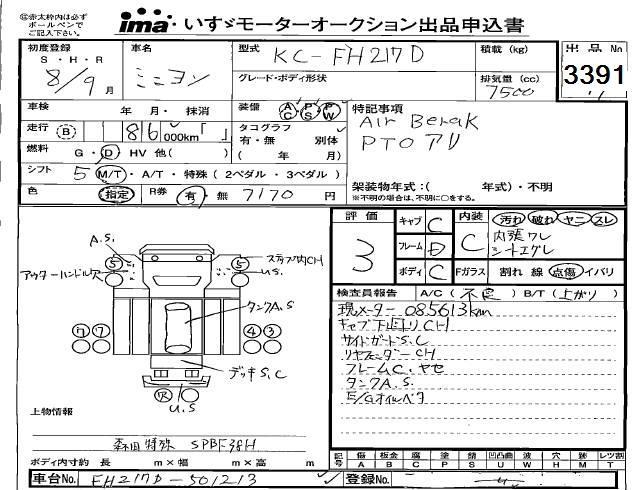 ※赤太枠内は必ず
ボールペンで
ご記入下さい。
ima・いすゞモーターオークション出品申込書
初度登録 車名 型式 KC-FH217D 積載 (kg) 出品No
S・H・R
8/9月 ミニヨン グレード・ボディ形状 排気量 (cc) 3391
7500
車検 年 月・ 抹消 装備 AC PS PW 特記事項
走行 B 86 000km「 」 タコグラフ Air Berak
有・無 別体 PTOアリ
燃料 G・D・HV 他( ) ( 年 月)
シフト 5 M/T・A/T・特殊 ( 2ペダル・3ペダル ) 架装物年式:( 年式)・不明
色 指定 R券 有・無 7170円 ※不明の場合は、不明に○をする。
評価 キャブ C 内装 汚れ 破れ ヤニ スレ
3 フレーム D C 内張ワレ
シートエグレ
ボディ C Fガラス 割れ 線 点傷 イバリ
A.S. スラブ内CH
アウターハンドル穴 5 5 U.S.
タンクA.S
7 7 4 3
デッキS.C
R U.S
検査員報告 A/C (不良) B/T (上がり)
現メーター 085613km
キャブ下廻りCH
サイドガードS.C
リヤフェンダーCH
フレームC.ヤセ
タンクA.S.
E/Gオイルベタ
上物情報
森田特殊 SPBF38H
ボディ内寸約 長 m×幅 m×高 m
記号 傷 板金 腐 塗 錆 凹凸曲 波 穴 跡 レンズ割
A B C P S U W H M T
車台No. FH217D-501213 登録No.